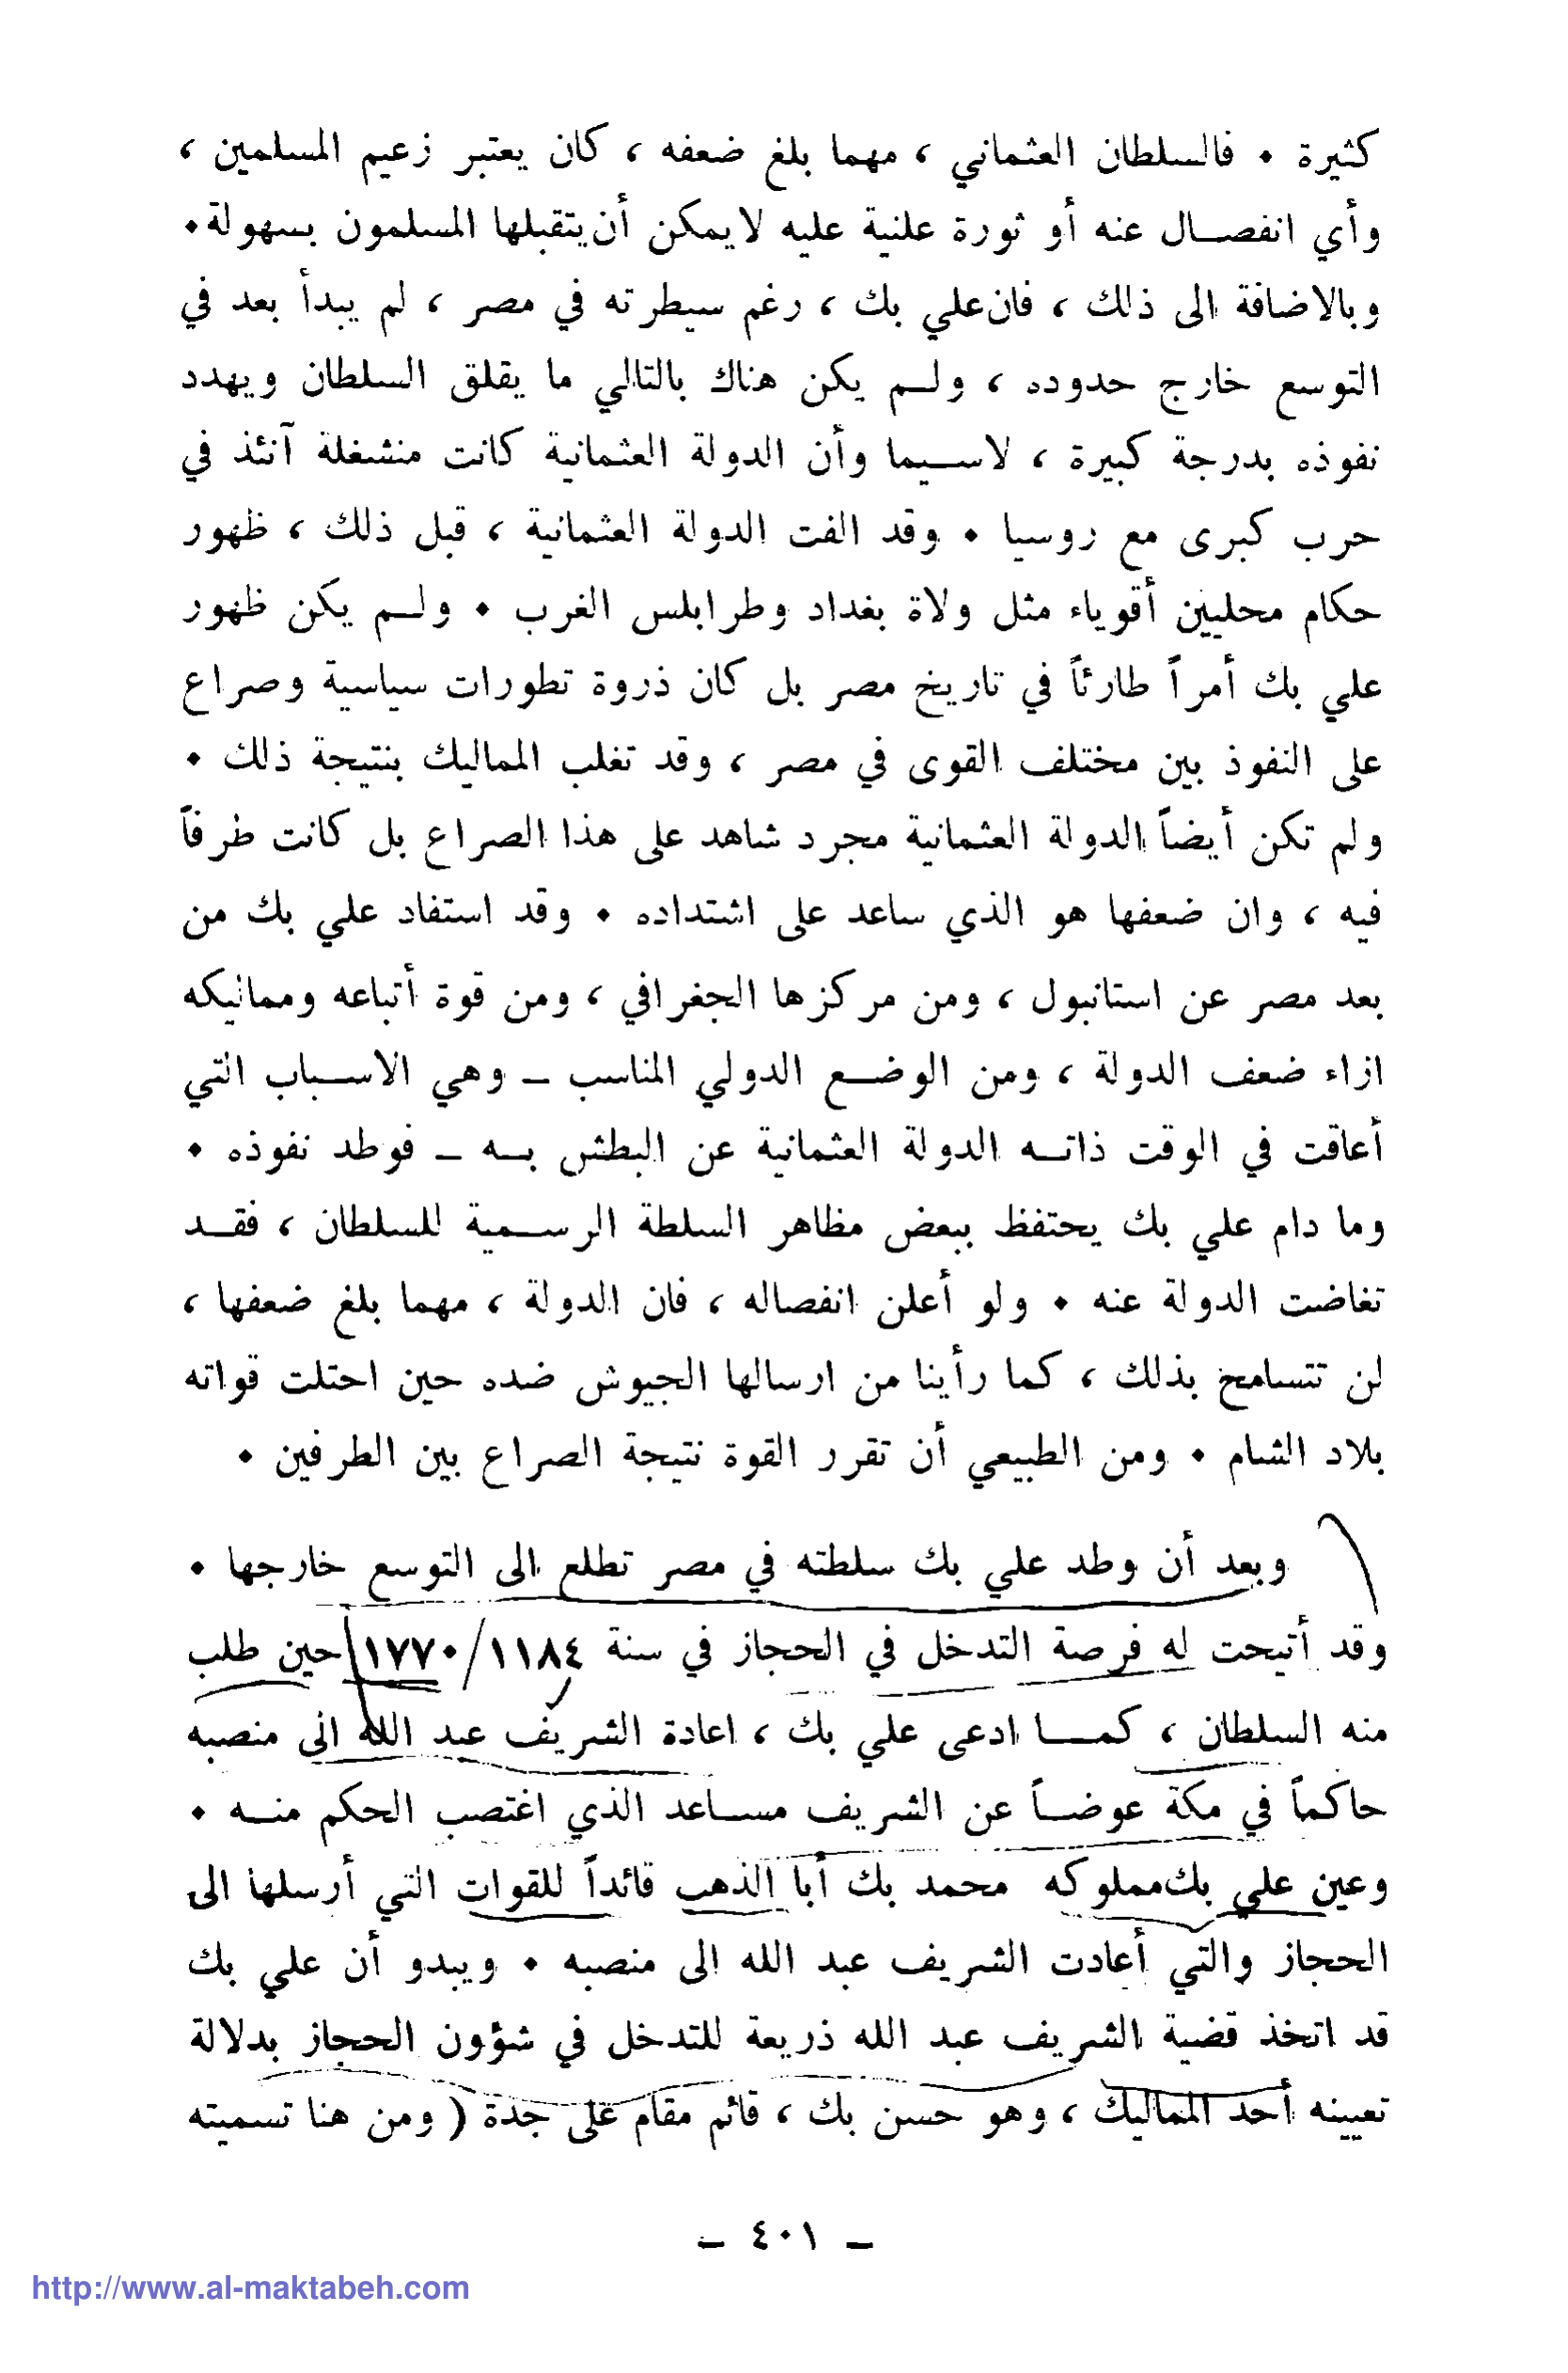 كثيرة . فالسلطان العثماني ، مهما بلغ ضعفه ، كان يعتبر زعيم المسلمين ،
وأي انفصال عنه أو ثورة علنية عليه لايمكن أن يتقبلها المسلمون بسهولة .
وبالاضافة الى ذلك ، فان علي بك ، رغم سيطرته في مصر ، لم يبدأ بعد في
التوسع خارج حدوده ، ولم يكن هناك بالتالي ما يقلق السلطان ويهدد
نفوذه بدرجة كبيرة ، لاسيما وأن الدولة العثمانية كانت منشغلة آنئذ في
حرب كبرى مع روسيا . وقد الفت الدولة العثمانية ، قبل ذلك ، ظهور
حكام محليين أقوياء مثل ولاة بغداد وطرابلس الغرب . ولم يكن ظهور
علي بك أمراً طارئاً في تاريخ مصر بل كان ذروة تطورات سياسية وصراع
على النفوذ بين مختلف القوى في مصر ، وقد تغلب المماليك بنتيجة ذلك .
ولم تكن أيضاً الدولة العثمانية مجرد شاهد على هذا الصراع بل كانت طرفاً
فيه ، وان ضعفها هو الذي ساعد على اشتداده . وقد استفاد علي بك من
بعد مصر عن استانبول ، ومن مركزها الجغرافي ، ومن قوة أتباعه ومماليكه
ازاء ضعف الدولة ، ومن الوضع الدولي المناسب ــ وهي الاسباب التي
أعاقت في الوقت ذاته الدولة العثمانية عن البطش به ــ فوطد نفوذه .
وما دام علي بك يحتفظ ببعض مظاهر السلطة الرسمية للسلطان ، فقد
تغاضت الدولة عنه . ولو أعلن انفصاله ، فان الدولة ، مهما بلغ ضعفها ،
لن تتسامح بذلك ، كما رأينا من ارسالها الجيوش ضده حين احتلت قواته
بلاد الشام . ومن الطبيعي أن تقرر القوة نتيجة الصراع بين الطرفين .
وبعد أن وطد علي بك سلطته في مصر تطلع الى التوسع خارجها .
وقد أتيحت له فرصة التدخل في الحجاز في سنة ١١٨٤/١٧٧٠ حين طلب
منه السلطان ، كما ادعى علي بك ، اعادة الشريف عبد الله الى منصبه
حاكماً في مكة عوضاً عن الشريف مساعد الذي اغتصب الحكم منه .
وعين علي بك مملوكه محمد بك أبا الذهب قائداً للقوات التي أرسلها الى
الحجاز والتي أعادت الشريف عبد الله الى منصبه . ويبدو أن علي بك
قد اتخذ قضية الشريف عبد الله ذريعة للتدخل في شؤون الحجاز بدلالة
تعيينه أحد المماليك ، وهو حسن بك ، قائم مقام على جدة ( ومن هنا تسميته
ــ ٤٠١ ــ
http://www.al-maktabeh.com